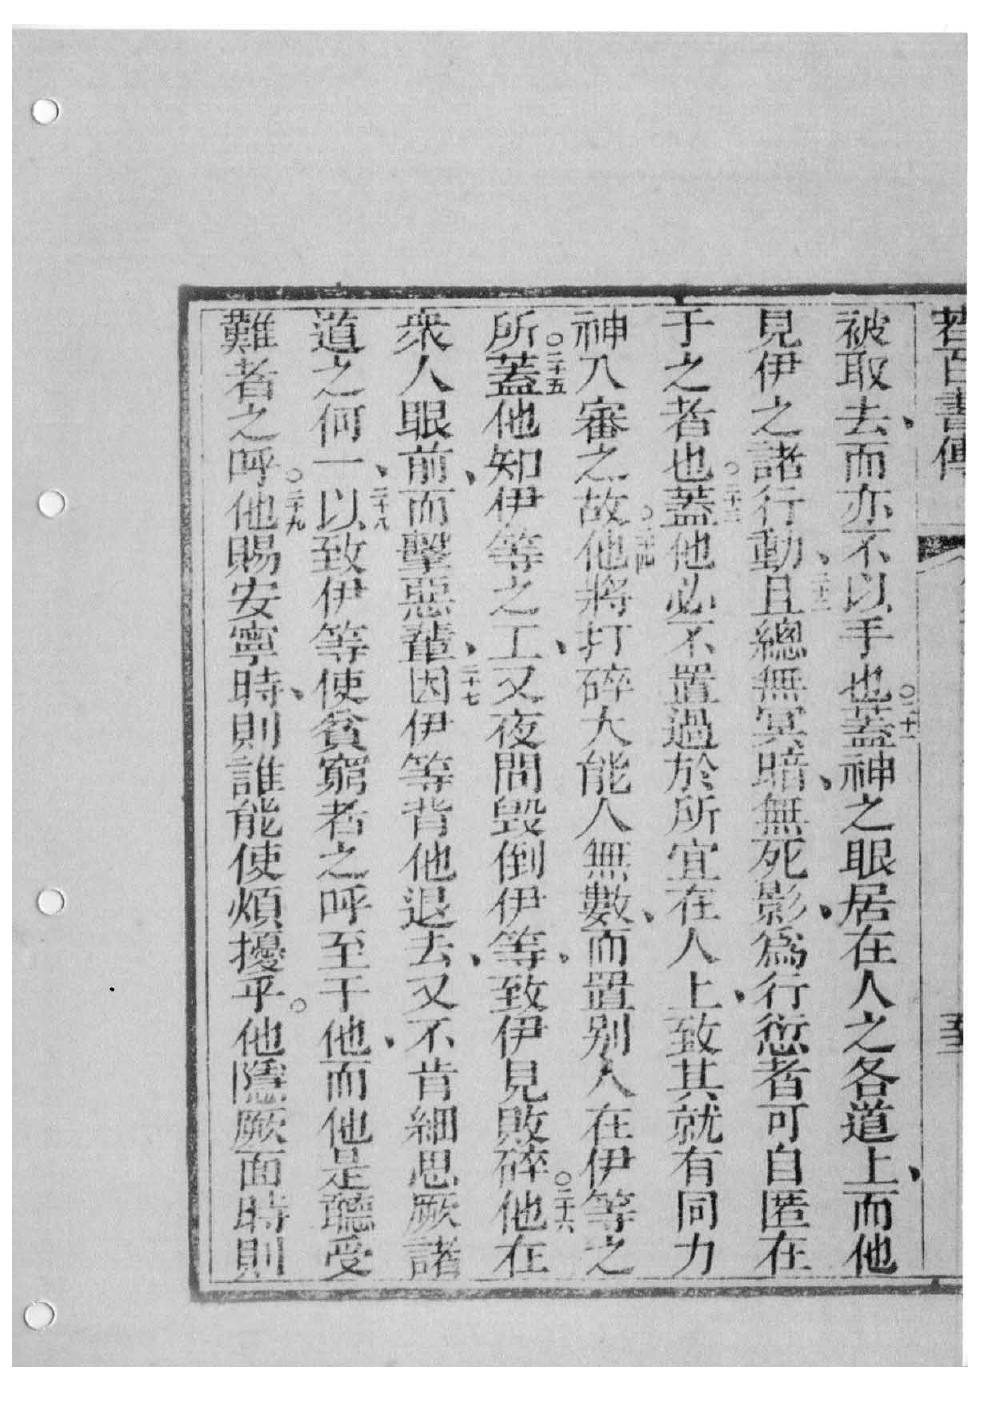 若百書傳
被取去、而亦不以手也。二十一蓋神之眼居在人之各道上、而他
見伊之諸行動、二十二且總無冥暗、無死影、爲行愆者可自匿在
于之者也。二十三蓋他必不置過於所宜在人上、致其就有同力
神入審之故。二十四他將打碎大能人無數、而置别人在伊等之
所。二十五蓋他知伊等之工、又夜間毀倒伊等、致伊見敗碎。二十六他在
衆人眼前、而擊惡輩、二十七因伊等背他退去、又不肯細思厥諸
道之何一、二十八以致伊等使貧窮者之呼至于他、而他是聽受
難者之呼。二十九他賜安寧時、則誰能使煩擾乎。他隱厥面時則